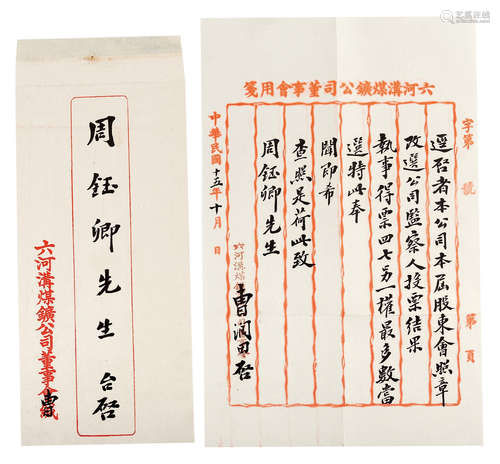 周鈺卿先生 台啓
六河溝煤鑛公司董事會緘
曹
六河溝煤鑛公司董事會用箋
字第 號 第 頁
逕啓者本公司本屆股東會照章
改選公司監察人投票結果
執事得票四七另一權最多數當
選特此奉
聞即希
查照是荷此致
周鈺卿先生
六河溝煤鑛
曹潤田啓
中華民國十五年十月 日